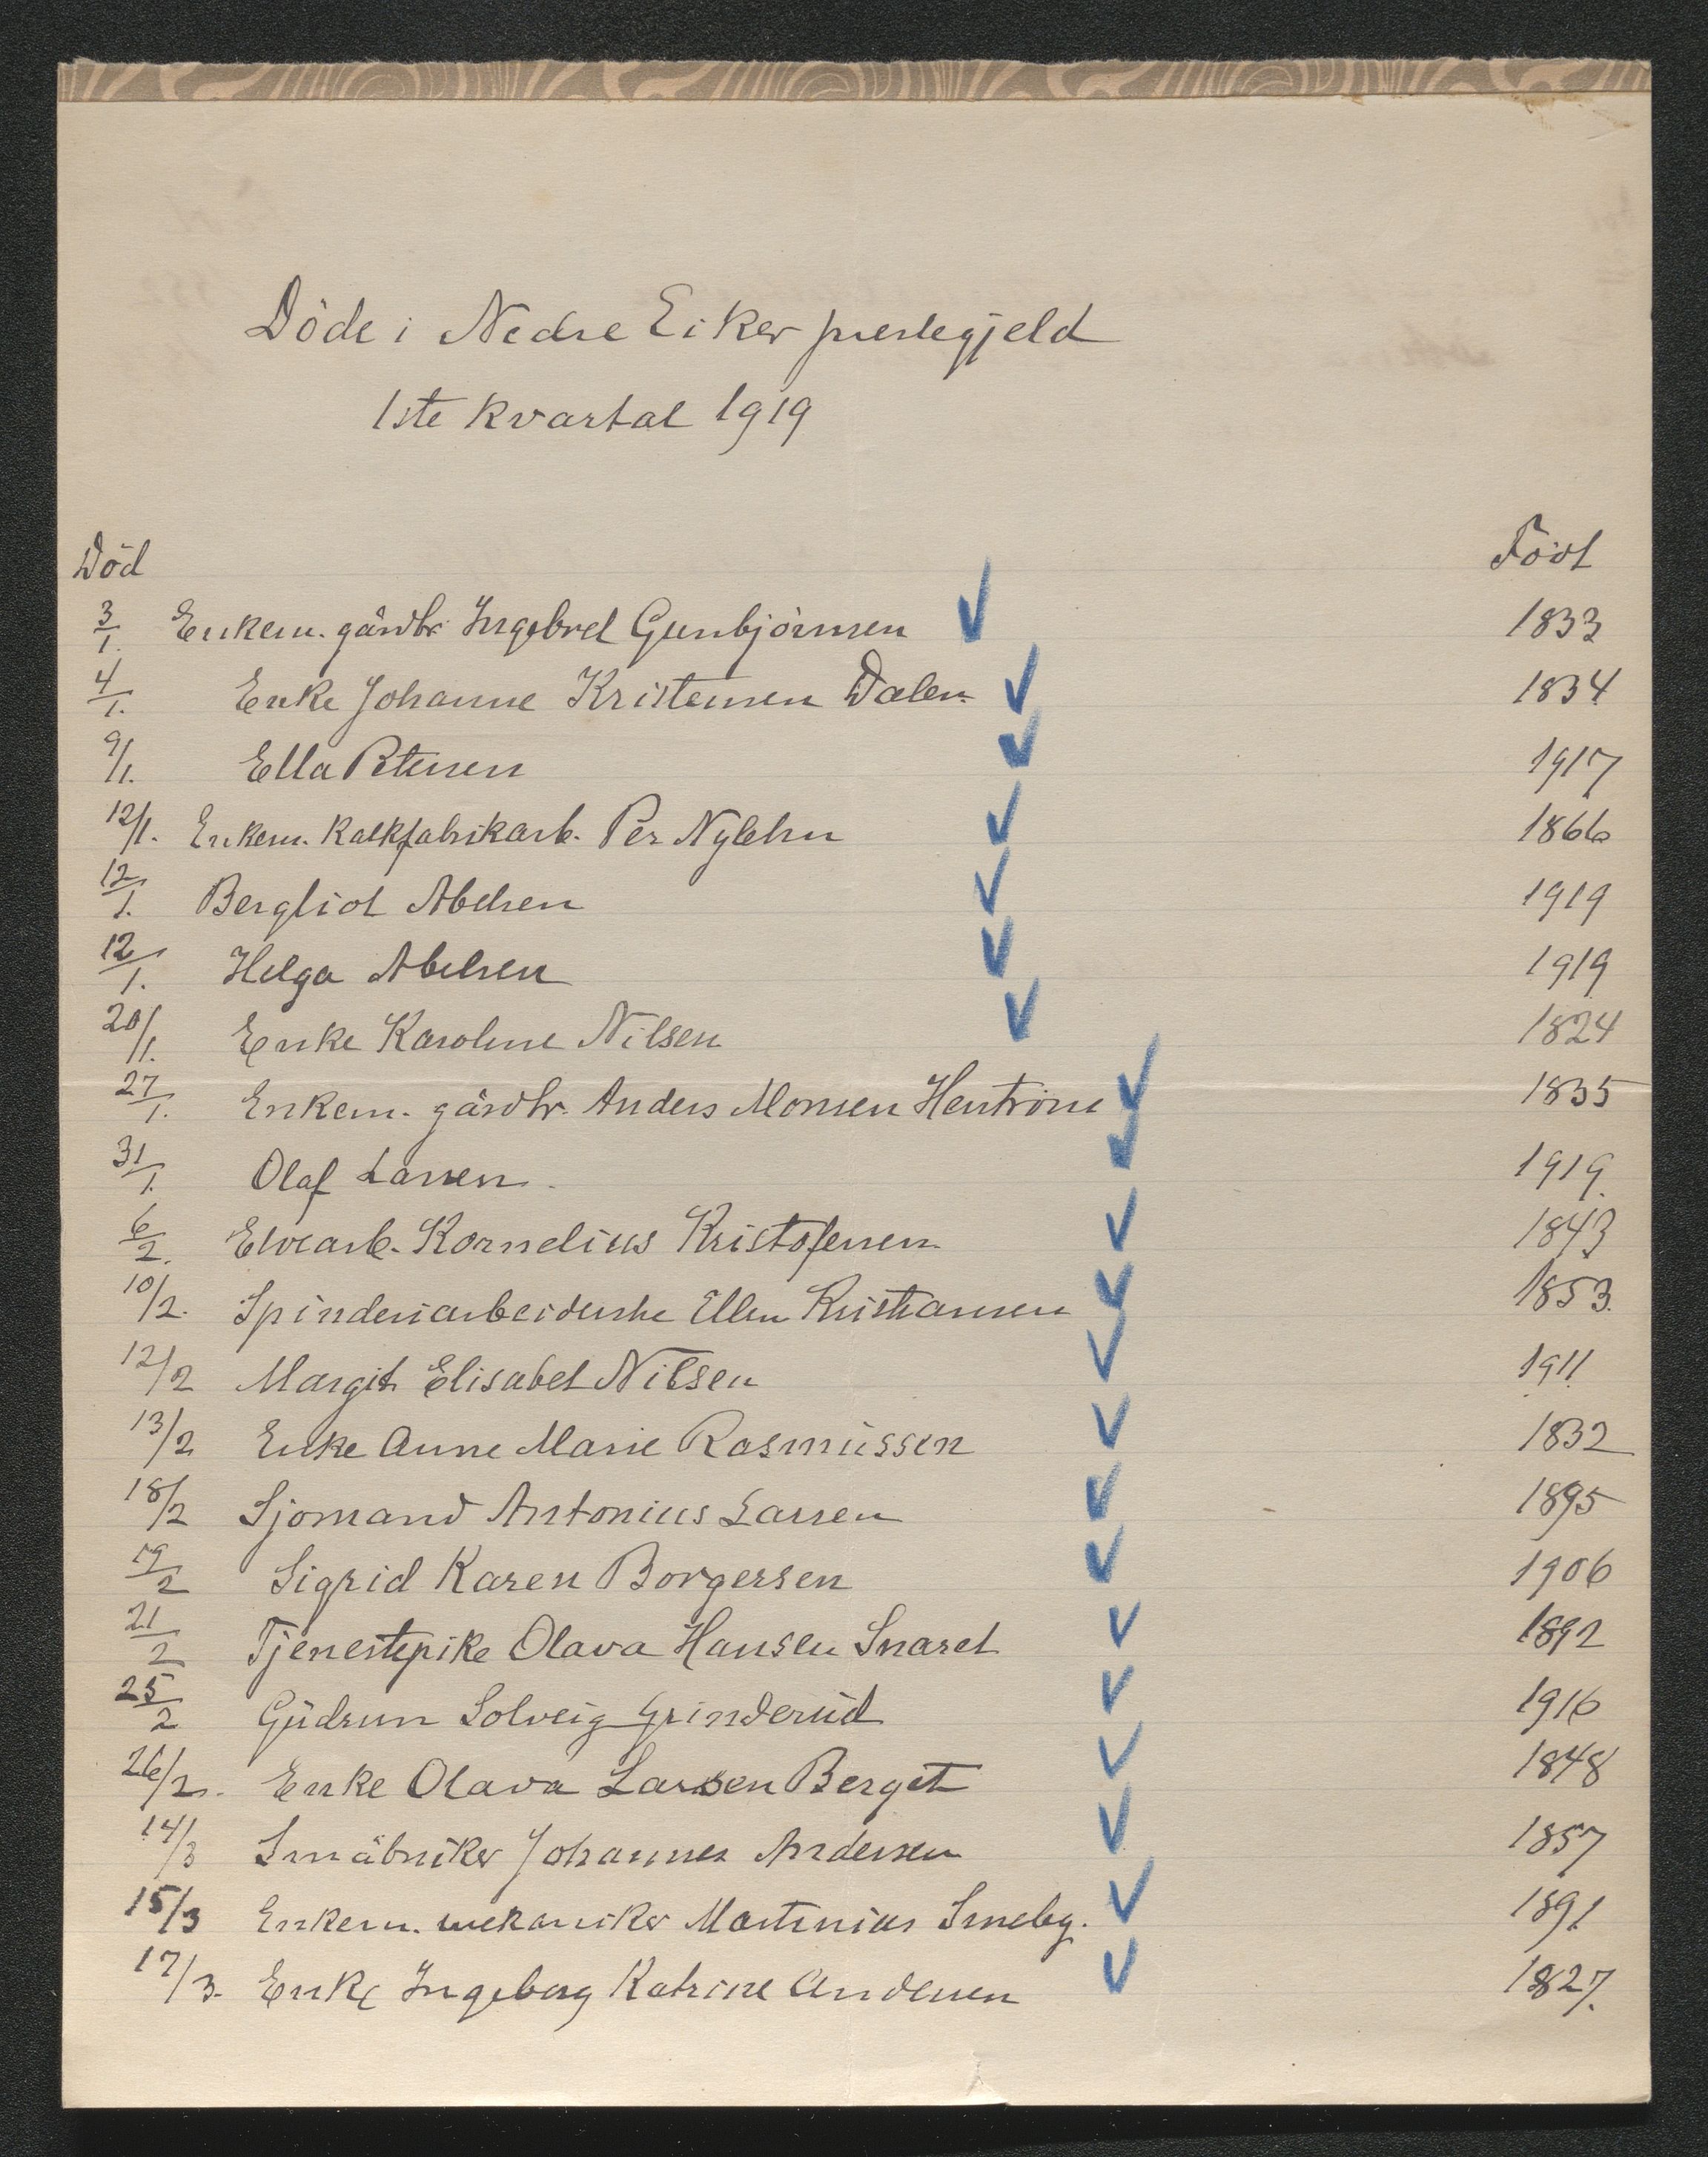 Döde i Nedre Eiker prestegjeld
1ste kvartal 1919
Död Född
3/1. Enkem. gårdbr. Ingebret Gunbjörnsen 1833
4/1. Enke Johanne Kristensen Dalen 1834
9/1. Ella Petersen 1917
12/1. Enkem. Kalkfabrikarb. Per Nylehn 1866
12/1. Bergliot Abelsen 1919
12/1. Helga Abelsen 1919
20/1. Enke Karoline Nilsen 1824
27/1. Enkem. gårdbr. Anders Monsen 1835
31/1. Olaf Larsen. 1919.
6/2. Elvearb. Kornelius Kristofersen 1843
10/2. Spinderiarbeiderske Ellen Kristiansen 1853.
12/2 Margit Elisabet Nilsen 1911
13/2 Enke Anne Marie Rasmussen 1832
18/2 Sjømand Antonius Larsen 1895
19/2 Sigrid Karen Borgersen 1906
21/2 Tjenestepike Olava Hansen Snaret 1892
25/2 Gudrun Solveig Grinderud 1916
26/2. Enke Olava Larsen Berget 1848
14/3 Småbruker Johannes Andersen 1857
15/3 Enkem. mekaniker Martinius Smeby. 1891
17/3. Enke Ingeborg Katrine Andersen 1827.